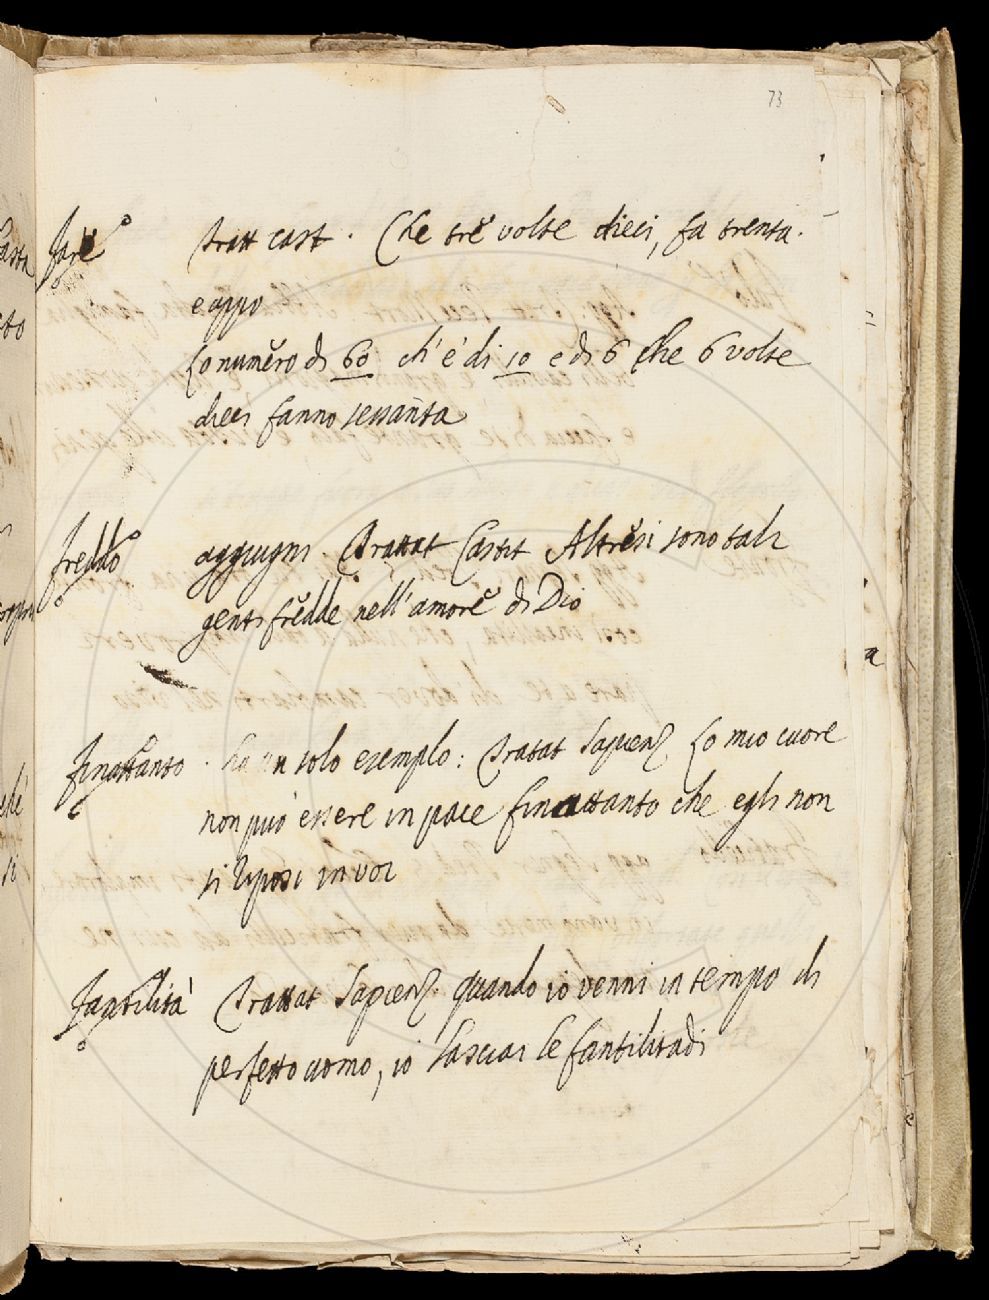 73
fare Tratt cast. Che tre volte dieci, fa trenta.
e appo
Lo numero di 60 ch'è di 10 e di 6 che 6 volte
dieci fanno sessanta
freddo aggiugni. Trattat Castit Altresi sono tali
genti fredde nell'amore di Dio
finattanto ha un solo esemplo: Tratat Sapienz Lo mio cuore
non può essere in pace finattanto che egli non
si riposi in voi
fantilità Trattat Sapienz. quando io venni in tempo di
perfetto uomo, io lasciai le fantilitadi